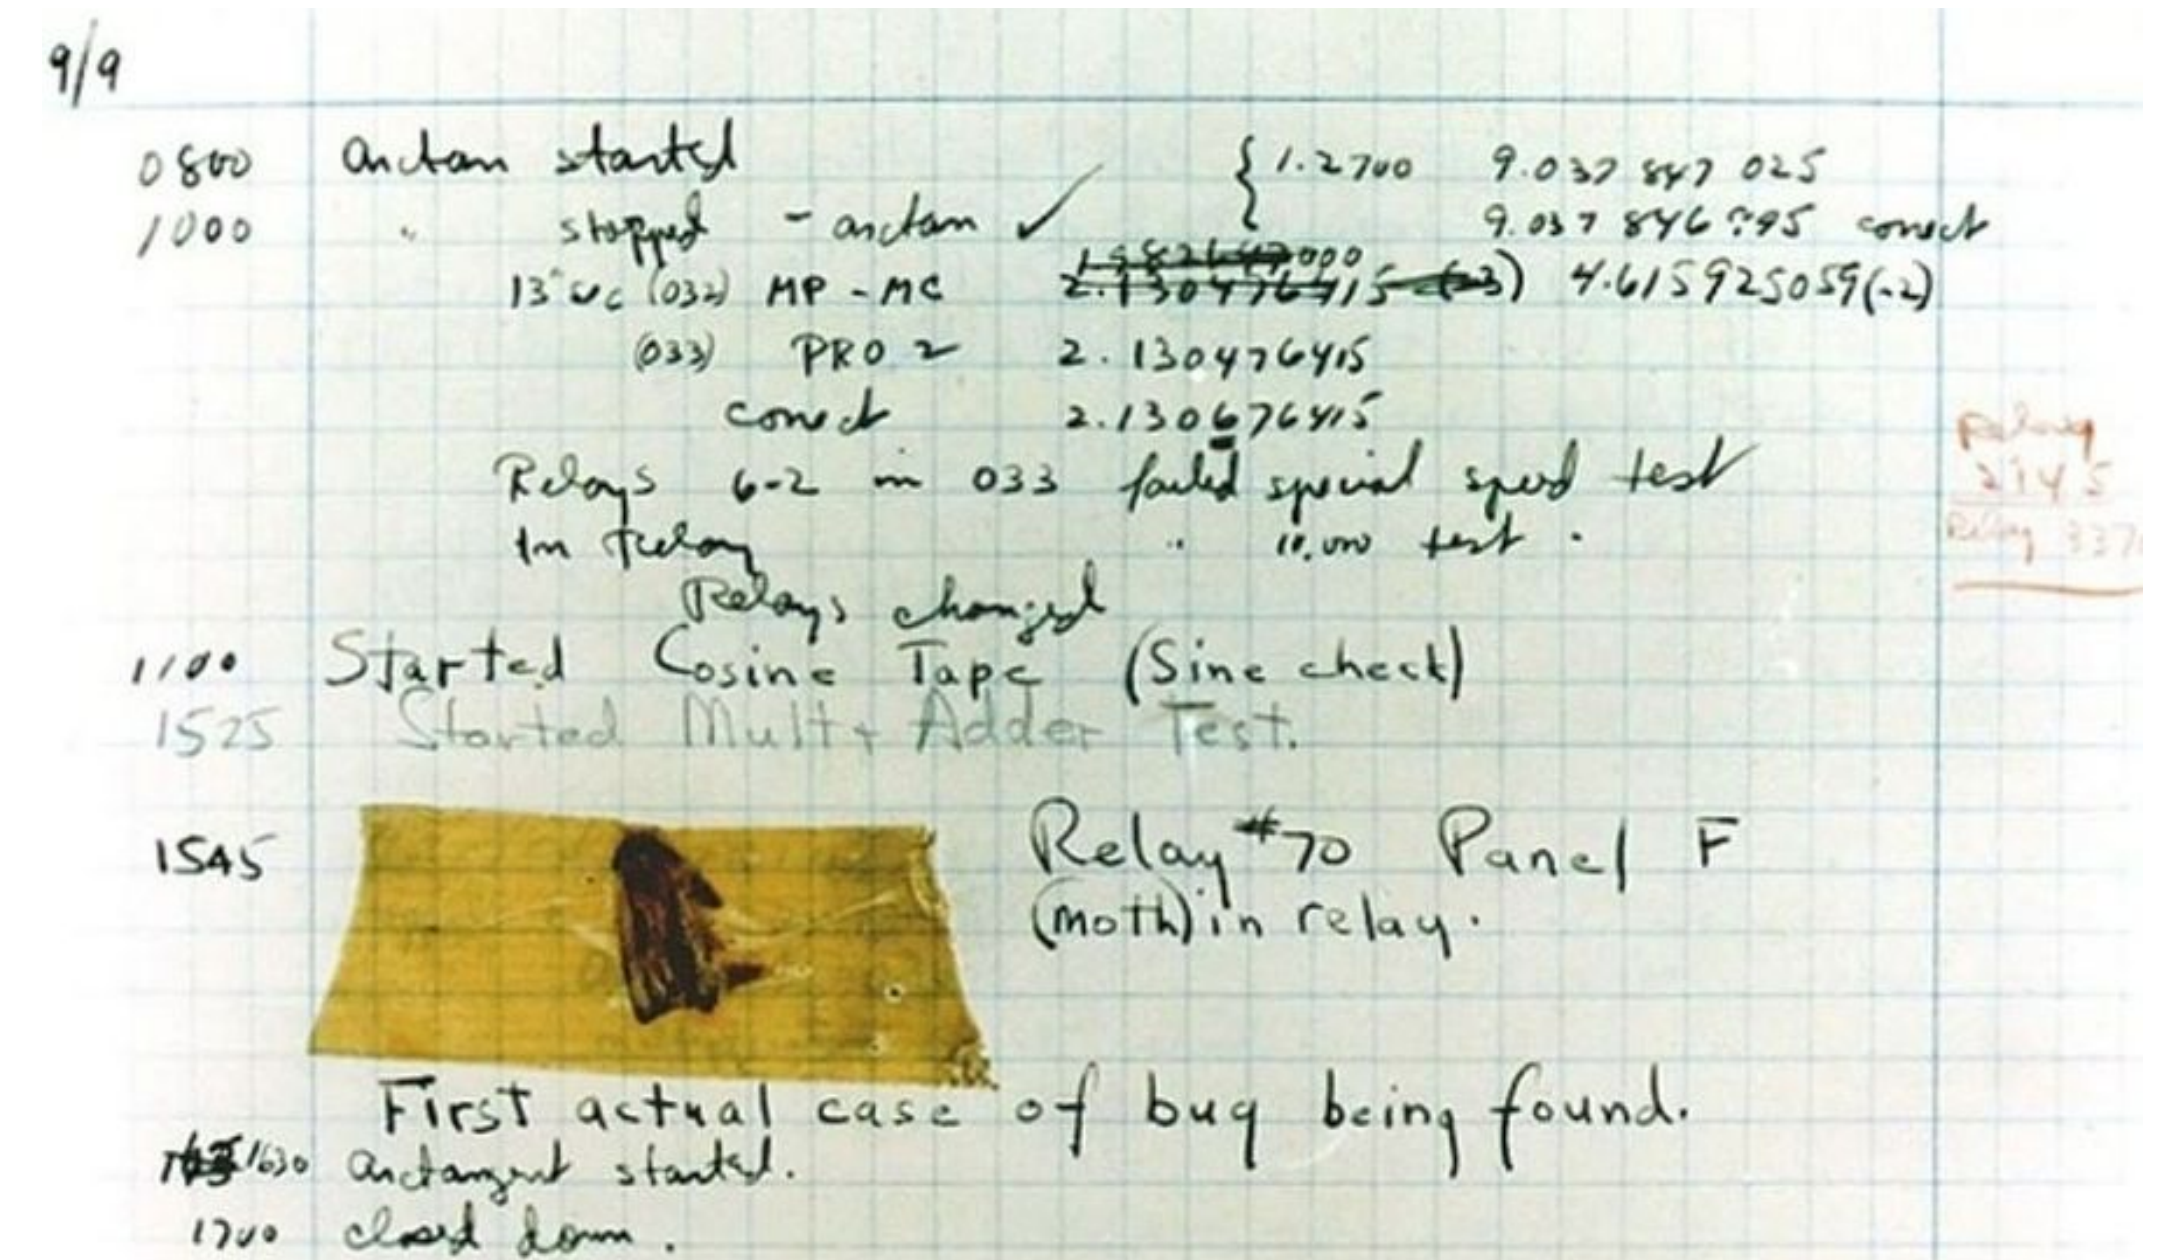 9/9
0800 arctan started { 1.2700 9.037 847 025
1000 " stopped - arctan ✓ 9.037 846 995 conect
13" uc (032) MP - MC 2.130476415 (-3) 4.615925059(-2)
(033) PRO 2 2.130476415
conect 2.130676415
Relays 6-2 in 033 failed special speed test
In relay " 10,000 test .
Relays changed
Relay
2145
Relay 337
1100 Started Cosine Tape (Sine check)
1525 Started Mult + Adder Test.
1545 Relay #70 Panel F
(moth) in relay.
First actual case of bug being found.
1630 arctangent started.
1700 closed down.